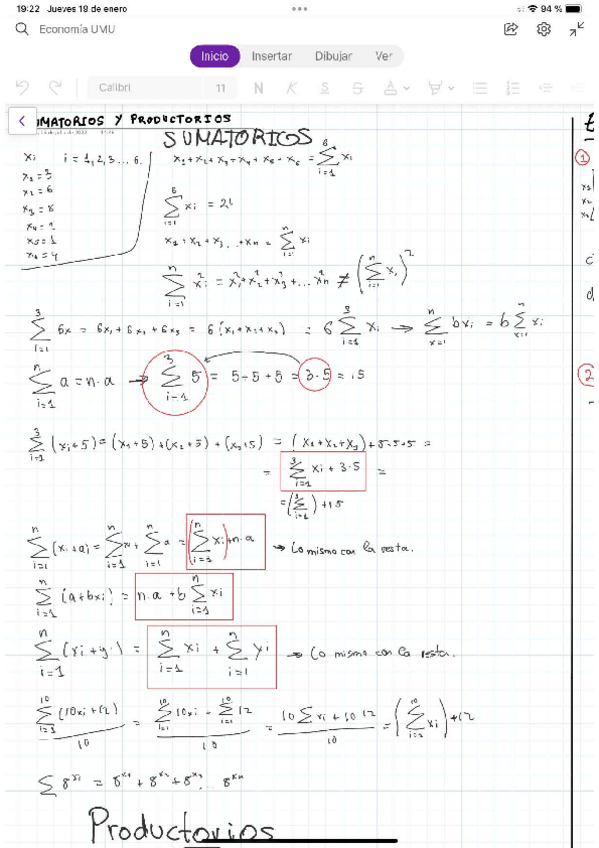 19:22 Jueves 19 de enero 94 %
Economía UMU
Inicio Insertar Dibujar Ver
Calibri 11 N K S A
UMATORIOS Y PRODUCTORIOS
SUMATORIOS
xi i = 1, 2, 3 ... 6.
x₁ + x₂ + x₃ + x₄ + x₅ + x₆ = ∑_{i=1}^{6} xi
x₁ = 3
x₂ = 6
x₃ = 8
x₅ = 1
x₆ = 4
∑_{i=1}^{6} xi =
x₁ + x₂ + x₃ ... + xn = ∑_{i=1}^{n} xi
∑_{i=1}^{n} xi² = x₁² + x₂² + x₃² + ... xn² ≠ (∑_{i=1}^{n} xi)²
∑_{i=1}^{3} 6x = 6x₁ + 6x₂ + 6x₃ = 6(x₁ + x₂ + x₃) = 6 ∑_{i=1}^{3} xi → ∑ bxi = b ∑ xi
∑_{i=1}^{n} a = n·a → ∑_{i=1}^{3} 5 = 5 + 5 + 5 = 3·5 = 15
∑_{i=1}^{3} (xi + 5) = (x₁ + 5) + (x₂ + 5) + (x₃ + 5) = (x₁ + x₂ + x₃) + 5+5+5 =
= ∑_{i=1}^{3} xi + 3·5 =
= (∑_{i=1}^{3}) + 15
∑_{i=1}^{n} (xi + a) = ∑_{i=1}^{n} x + ∑_{i=1}^{n} a = (∑_{i=1}^{n} xi) + n·a → Lo mismo con la resta.
∑_{i=1}^{n} (a + bxi) = n·a + b ∑_{i=1}^{n} xi
∑_{i=1}^{n} (xi + yi) = ∑_{i=1}^{n} xi + ∑_{i=1}^{n} yi → Lo mismo con la resta.
∑_{i=1}^{10} (10xi + 12) / 10 = ∑_{i=1}^{10} 10xi + ∑_{i=1}^{10} 12 / 10 = 10 ∑ xi + 10·12 / 10 = (∑_{i=1}^{10} xi) + 12
∑ 8^{xi} = 8^{x₁} + 8^{x₂} + 8^{x₃} ... 8^{xn}
Productorios
1
2